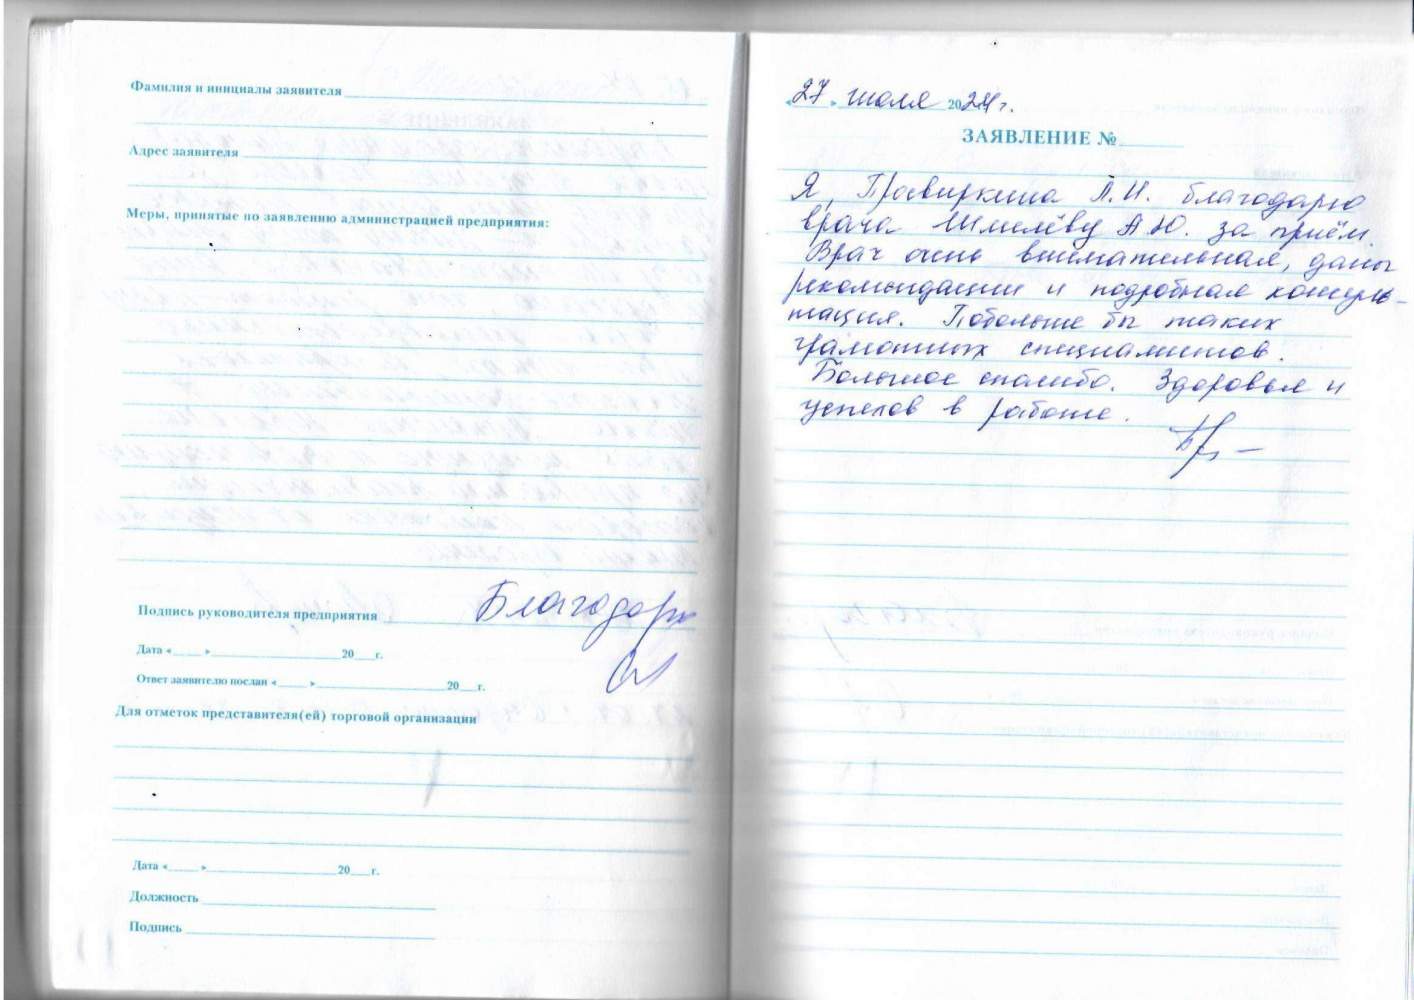 Фамилия и инициалы заявителя
Адрес заявителя
Меры, принятые по заявлению администрацией предприятия:
Подпись руководителя предприятия Благодарю
Дата « » 20 г.
Ответ заявителю послан « » 20 г.
Для отметок представителя(ей) торговой организации
Дата « » 20 г.
Должность
Подпись
«27» июля 2024 г.
ЗАЯВЛЕНИЕ №
Я, Правиркина Л.И. благодарю
врача Шмелёву А.Ю. за приём.
Врач очень внимательная, даны
рекомендации и подробная консуль-
тация. Побольше бы таких
грамотных специалистов.
Большое спасибо. Здоровья и
успехов в работе.